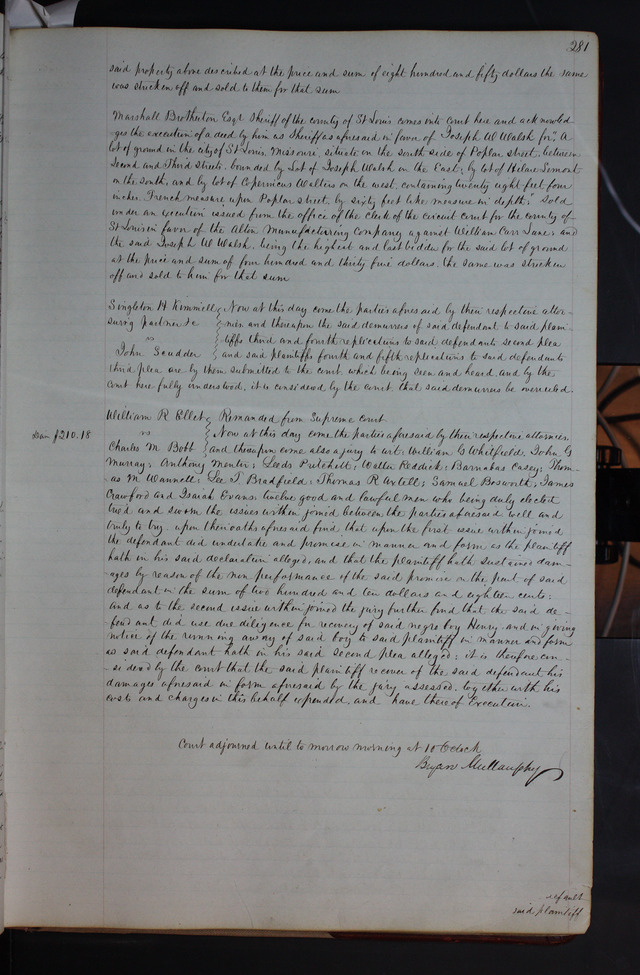 281
said property above described at the price and sum of eight hundred and fifty dollars the same
was stricken off and sold to them for that sum
Marshall Brotherton Esqr Sheriff of the county of St Louis comes into Court here and acknowled
ges the execution of a deed by him as Sheriff as aforesaid in favor of Joseph W Walsh for: A
lot of ground in the city of St Louis, Missouri, situate on the south side of Poplar street, between
Second and Third Streets, bounded by Lot of Joseph Walsh on the East; by lot of
on the South, and by lot of Copernicus Walters on the west, containing twenty eight feet four
inches French measure upon Poplar street, by sixty feet like measure in depth; Sold
under an execution issued from the office of the clerk of the circuit court for the county of
St Louis in favor of the Alton Manufacturing Company against William Carr Lane; and
the said Joseph W Walsh, being the highest and last bidder for the said lot of ground
at the price and sum of four hundred and thirty five dollars, the same was stricken
off and sold to him for that sum
Singleton H Kimmell Now at this day come the parties aforesaid by their respective attor-
surviv partner &c neis and thereupon the said demurrers of said defendant to said plain-
vs tiffs third and fourth replications to said defendants second plea
John Scudder and said plaintiffs fourth and fifth replications to said defendants
third plea are by them submitted to the court, which being seen and heard and by the
Court here fully understood, it is considered by the court, that said demurrers be overruled.
William R Ellet Remanded from Supreme Court
Dam $210.18 vs Now at this day come the parties aforesaid by their respective attornies
Charles M Bobb and thereupon come also a jury to wit: William C Whitfield, John G
Murray; Anthony Menter; Leeds Pritchett; Wallis Reddick; Barnabas Casey; Thom-
as M Wannell; Lee T Bradfield; Thomas R Axtell; Samuel Bosworth; James
Crawford and Isaiah Evans, twelve good and lawful men who being duly elected
tried and sworn the issues within joined between the parties aforesaid well and
truly to try, upon their oaths aforesaid find that upon the first issue within joined
the defendant did undertake and promise in manner and form as the plaintiff
hath in his said declaration alleged, and that the plaintiff hath sustained dam-
ages by reason of the non performance of the said promise on the part of said
defendant in the sum of two hundred and ten dollars and eighteen cents:
and as to the second issue within joined the jury further find that the said de-
fendant did use due diligence for recovery of said negro boy Henry, and in giving
notice of the running away of said boy to said plaintiff in manner and form
as said defendant hath in his said second plea alleged; it is therefore con-
sidered by the court that the said plaintiff recover of the said defendant his
damages aforesaid in form aforesaid by the jury assessed, together with his
costs and charges in this behalf expended, and have thereof Execution.
Court adjourned until to morrow morning at 10 O'clock
Bryan Mullanphy
default
said plaintiff